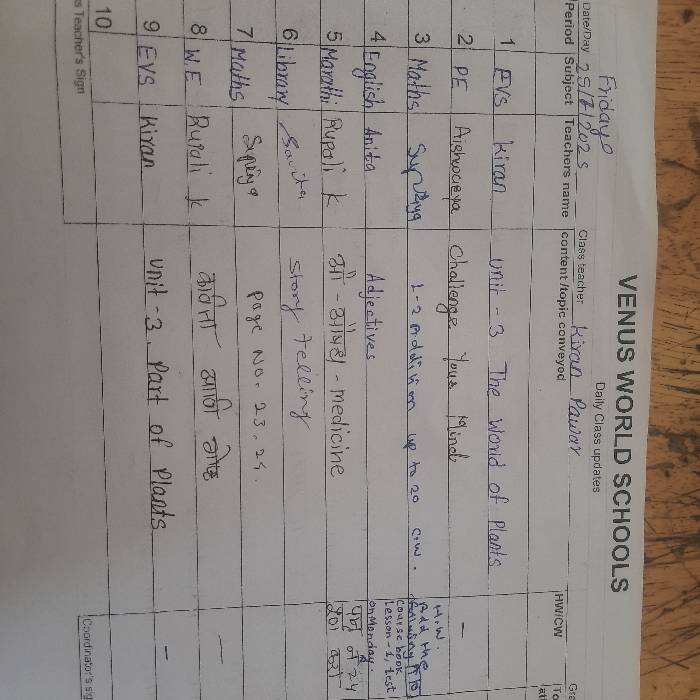 VENUS WORLD SCHOOLS
Daily Class updates
Friday
Date/Day 25/7/2025 Class teacher Kiran Pawar
Period Subject Teachers name content /topic conveyed HW/CW
1 EVS Kiran unit - 3 The World of Plants
2 PE Aishwarya Challenge Your Mind -
3 Maths Supriya 1-2 Addition up to 20 C.W. H.W. Add the following
course book
4 English Anita Adjectives Lesson-1, test
on Monday.
5 Marathi Rupali k औ - औषध - medicine
6 Library Savita Story telling
7 Maths Supriya Page No. 23, 24.
8 W.E Rupali k कविता आणि -
9 EVS Kiran Unit - 3. Part of Plants -
10
Teacher's Sign Coordinator's